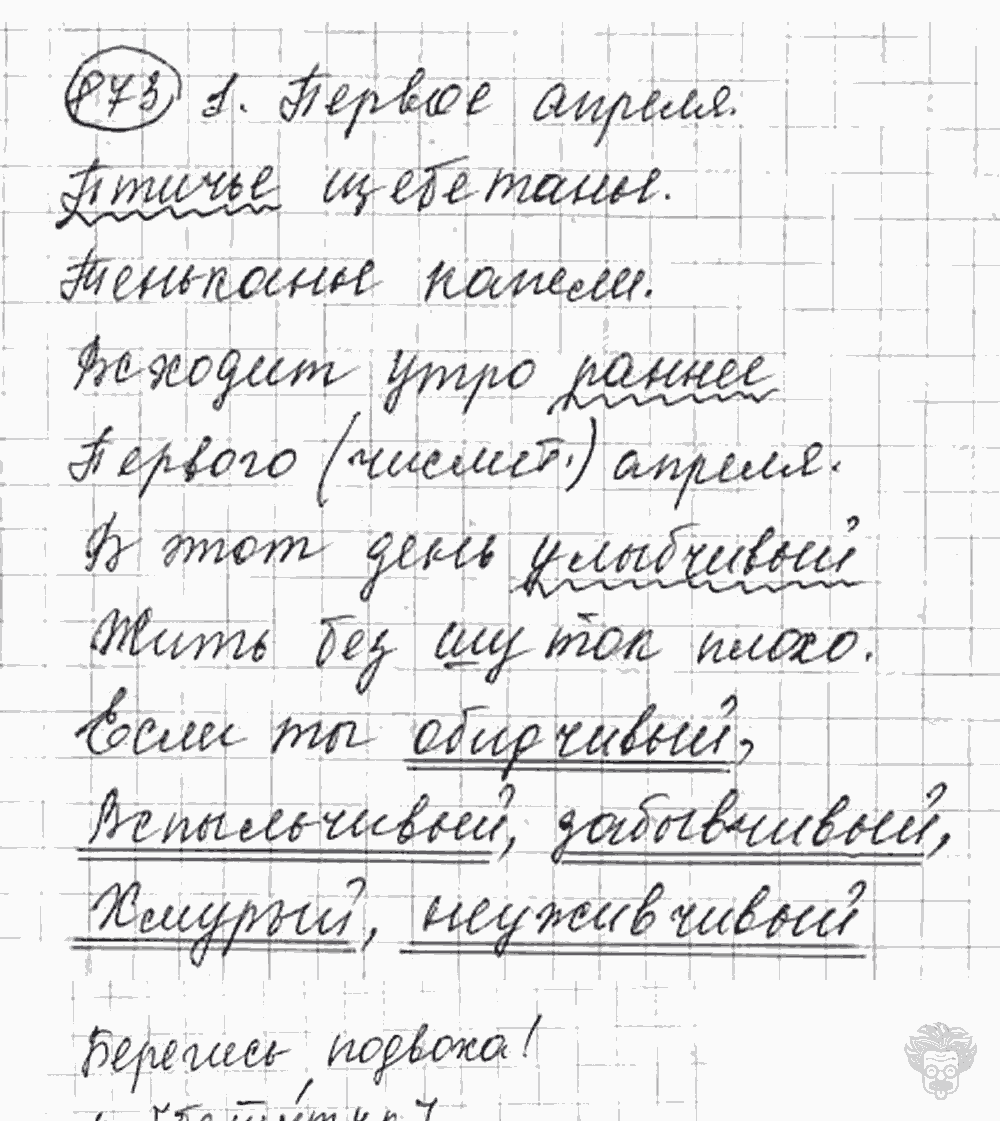 873 1. Первое апреля.
Птичье щебетанье.
Теньканье капели.
Всходит утро раннее
Первого (числит.) апреля.
В этот день улыбчивый
Жить без шуток плохо.
Если ты обидчивый,
Вспыльчивый, забывчивый,
Хмурый, неуживчивый
Берегись подвоха!